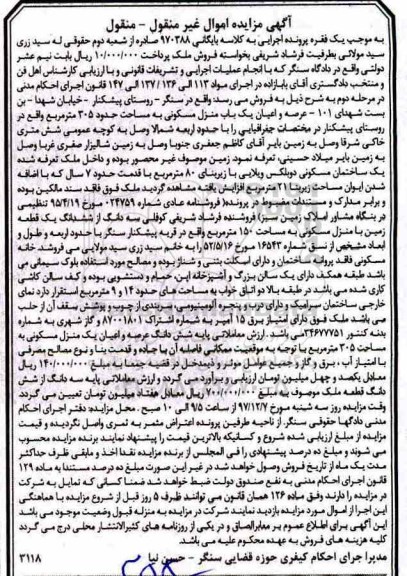 آگهی مزایده اموال غیر منقول - منقول
به موجب یک فقره پرونده اجرایی به کلاسه بایگانی ۹۷۰۳۸۸ صادره از شعبه دوم حقوقی له سید زری
سید مولائی بطرفیت فرشاد شریفی بخواسته فروش ملک پرداخت ۱۰/۰۰۰/۰۰۰ ریال بابت نیم عشر
دولتی واقع در دادگاه سنگر که با انجام عملیات اجرایی و تشریفات قانونی و با ارزیابی کارشناس اهل فن
و منتخب دادگستری آقای بابازاده در اجرای مواد ۱۱۳ الی ۱۳۶ / ۱۳۷ الی ۱۴۷ قانون اجرای احکام مدنی
در مرحله دوم به شرح ذیل به فروش می رسد: واقع در سنگر - روستای پیشکنار - خیابان شهدا - بن
بست شهدای ۱۰۱ - عرصه و اعیان یک باب منزل مسکونی به مساحت حدود ۳۰۵ مترمربع واقع در
روستای پیشکنار در مختصات جغرافیایی را با حدود اربعه شمالا وصل به کوچه عمومی شش متری
خاکی شرقا وصل به زمین بایر آقای کاظم جعفری جنوبا وصل به زمین شالیزار صفری غربا وصل
به زمین بایر میلاد حسینی، تعرفه نمود، زمین موصوف غیر محصور بوده و داخل ملک تعرفه شده
یک ساختمان مسکونی دوبلکس ویلایی با زیربنای ۸۰ مترمربع با قدمت حدود ۷ سال که با اضافه
شدن ایوان مساحت زیربنا به افزایش یافته مشاهده گردید، ملک فوق فاقد سند مالکین بوده
و برابر مدارک و مستندات مضبوط در پرونده( فروشنامه عادی شماره ۰۲۴۷۵۹ مورخ ۹۵/۴/۱۹ تنظیمی
در بنگاه مشاور املاک زمین سبز) فروشنده فرشاد شریفی کوفلی سه دانگ از ششدانگ یک قطعه
زمین با منزل مسکونی به مساحت ۱۵۰ مترمربع واقع در قریه پیشکنار سنگر با حدود اربعه و طول و
ابعاد مشخص از نسق شماره ۱۶۵۴۳ مورخ ۵۲/۵/۱۶ را به خانم سید زری سید مولایی می فروشد، خانه
مسکونی فاقد پروانه ساختمان و دارای اسکلت بتنی و شناژ بوده و مصالح مورد استفاده بلوک سیمانی می
باشد طبقه همکف دارای یک سالن بزرگ و آشپزخانه اپن، حمام و دستشویی بوده و کف سالن کاشی
کاری شده می باشد در طبقه بالا دو اتاق خواب به مساحت های حدود ۱۴ و ۹ مترمربع استقرار دارد نمای
خارجی ساختمان سرامیک و دارای درب و پنجره آلومینیومی، سربندی از چوب و پوشش سقف آن از حلب
می باشد ملک فوق دارای امتیاز برق ۱۵ آمپر به شماره اشتراک ۸۷۰۰۱۸۰۱ و گاز شهری به شماره
بدنه کنتور ۳۴۶۷۷۷۵۱می باشد. ارزش معاملاتی پایه شش دانگ عرصه و اعیان یک منزل مسکونی به
مساحت ۳۰۵ مترمربع با توجه به موقعیت مکانی فاصله آن با جاده و قدمت بنا و نوع مصالح مصرفی
با امتیاز آب ، برق و گاز و جمیع عوامل موثر و ذیمدخل در قضیه جمعا به مبلغ ۱۴۰/۰۰۰/۰۰۰ ریال
معادل یکصد و چهل میلیون تومان ارزیابی و برآورد می گردد و ارزش معاملاتی پایه سه دانگ از شش
دانگ قطعه ملک موصوف به مبلغ ۷۰۰/۰۰۰/۰۰۰ ریال معادل هفتاد میلیون تومان تعیین می گردد
وقت مزایده روز سه شنبه مورخ ۹۷/۱۲/۷ از ساعت ۹/۵ الی ۱۰ صبح . محل مزایده: دفتر اجرای احکام
مدنی دادگاهها حقوقی سنگر. از ناحیه طرفین پرونده اعتراض مثمر به ثمری واصل نگردیده و قیمت
مزایده از مبلغ ارزیابی شده شروع و کسانیکه بالاترین قیمت را پیشنهاد نمایند برنده مزایده محسوب
می شوند و مبلغ ده درصد پیشنهادی را فی المجلس از برنده مزایده نقدا اخذ و مابقی ظرف حداکثر
مدت یک ماه از تاریخ فروش وصول خواهد شد در غیر این صورت مبلغ ده درصد مستندا به ماده ۱۲۹
قانون اجرای احکام مدنی به نفع صندوق دولت ضبط خواهد شد ضمنا کسانی که تمایل به شرکت
در مزایده را دارند وفق ماده ۱۲۶ همان قانون می توانند ظرف ۵ روز قبل از شروع مزایده با هماهنگی
این اجرا از اموال مورد مزایده بازدید نمایند شرکت در مزایده به منزله قبول وضعیت موجود می باشد
این آگهی برای اطلاع عموم بر معابرالصاق و در یکی از روزنامه های کثیرالانتشار محلی درج می گردد
کلیه هزینه های فروش به عهده محکوم علیه می باشد.
مدیرا جرای احکام کیفری حوزه قضایی سنگر - حسین نیا
۳۱۱۸